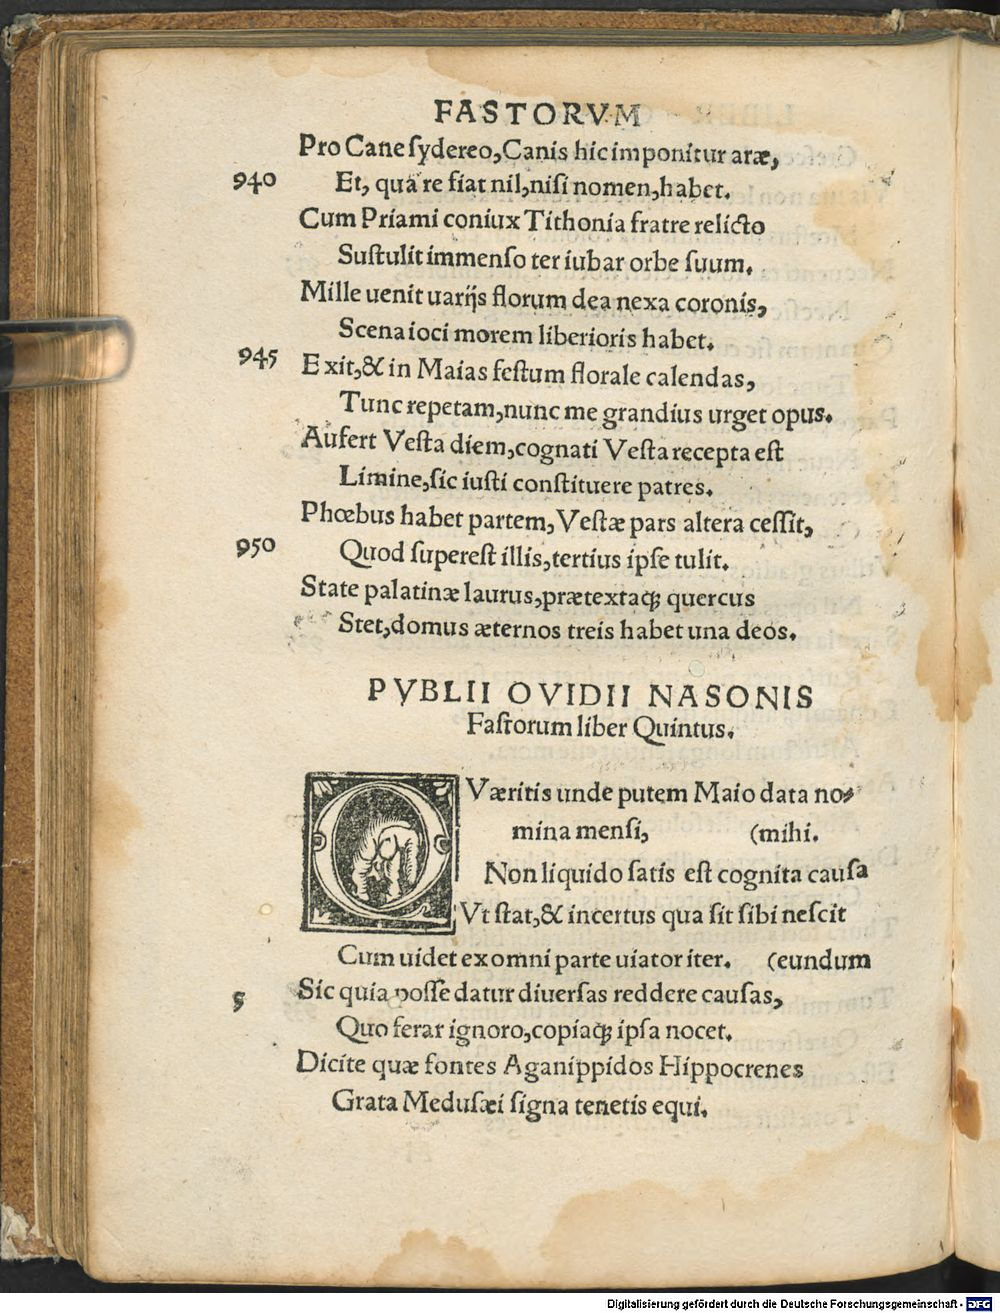 FASTORVM
Pro Cane sydereo, Canis hic imponitur aræ,
940 Et, qua re fiat nil, nisi nomen, habet.
Cum Priami coniux Tithonia fratre relicto
Sustulit immenso ter iubar orbe suum.
Mille uenit uarijs florum dea nexa coronis,
Scena ioci morem liberioris habet.
945 Exit, & in Maias festum florale calendas,
Tunc repetam, nunc me grandius urget opus.
Aufert Vesta diem, cognati Vesta recepta est
Limine, sic iusti constituere patres.
Phœbus habet partem, Vestæ pars altera cessit,
950 Quod superest illis, tertius ipse tulit.
State palatinæ laurus, prætextaq; quercus
Stet, domus æternos treis habet una deos.
PVBLII OVIDII NASONIS
Fastorum liber Quintus.
QVæritis unde putem Maio data no-
mina mensi, (mihi.
Non liquido satis est cognita causa
Vt stat, & incertus qua sit sibi nescit
Cum uidet ex omni parte uiator iter. (eundum
5 Sic quia posse datur diuersas reddere causas,
Quo ferar ignoro, copiaq; ipsa nocet.
Dicite quæ fontes Aganippidos Hippocrenes
Grata Medusæi signa tenetis equi.
Digitalisierung gefördert durch die Deutsche Forschungsgemeinschaft - DFG